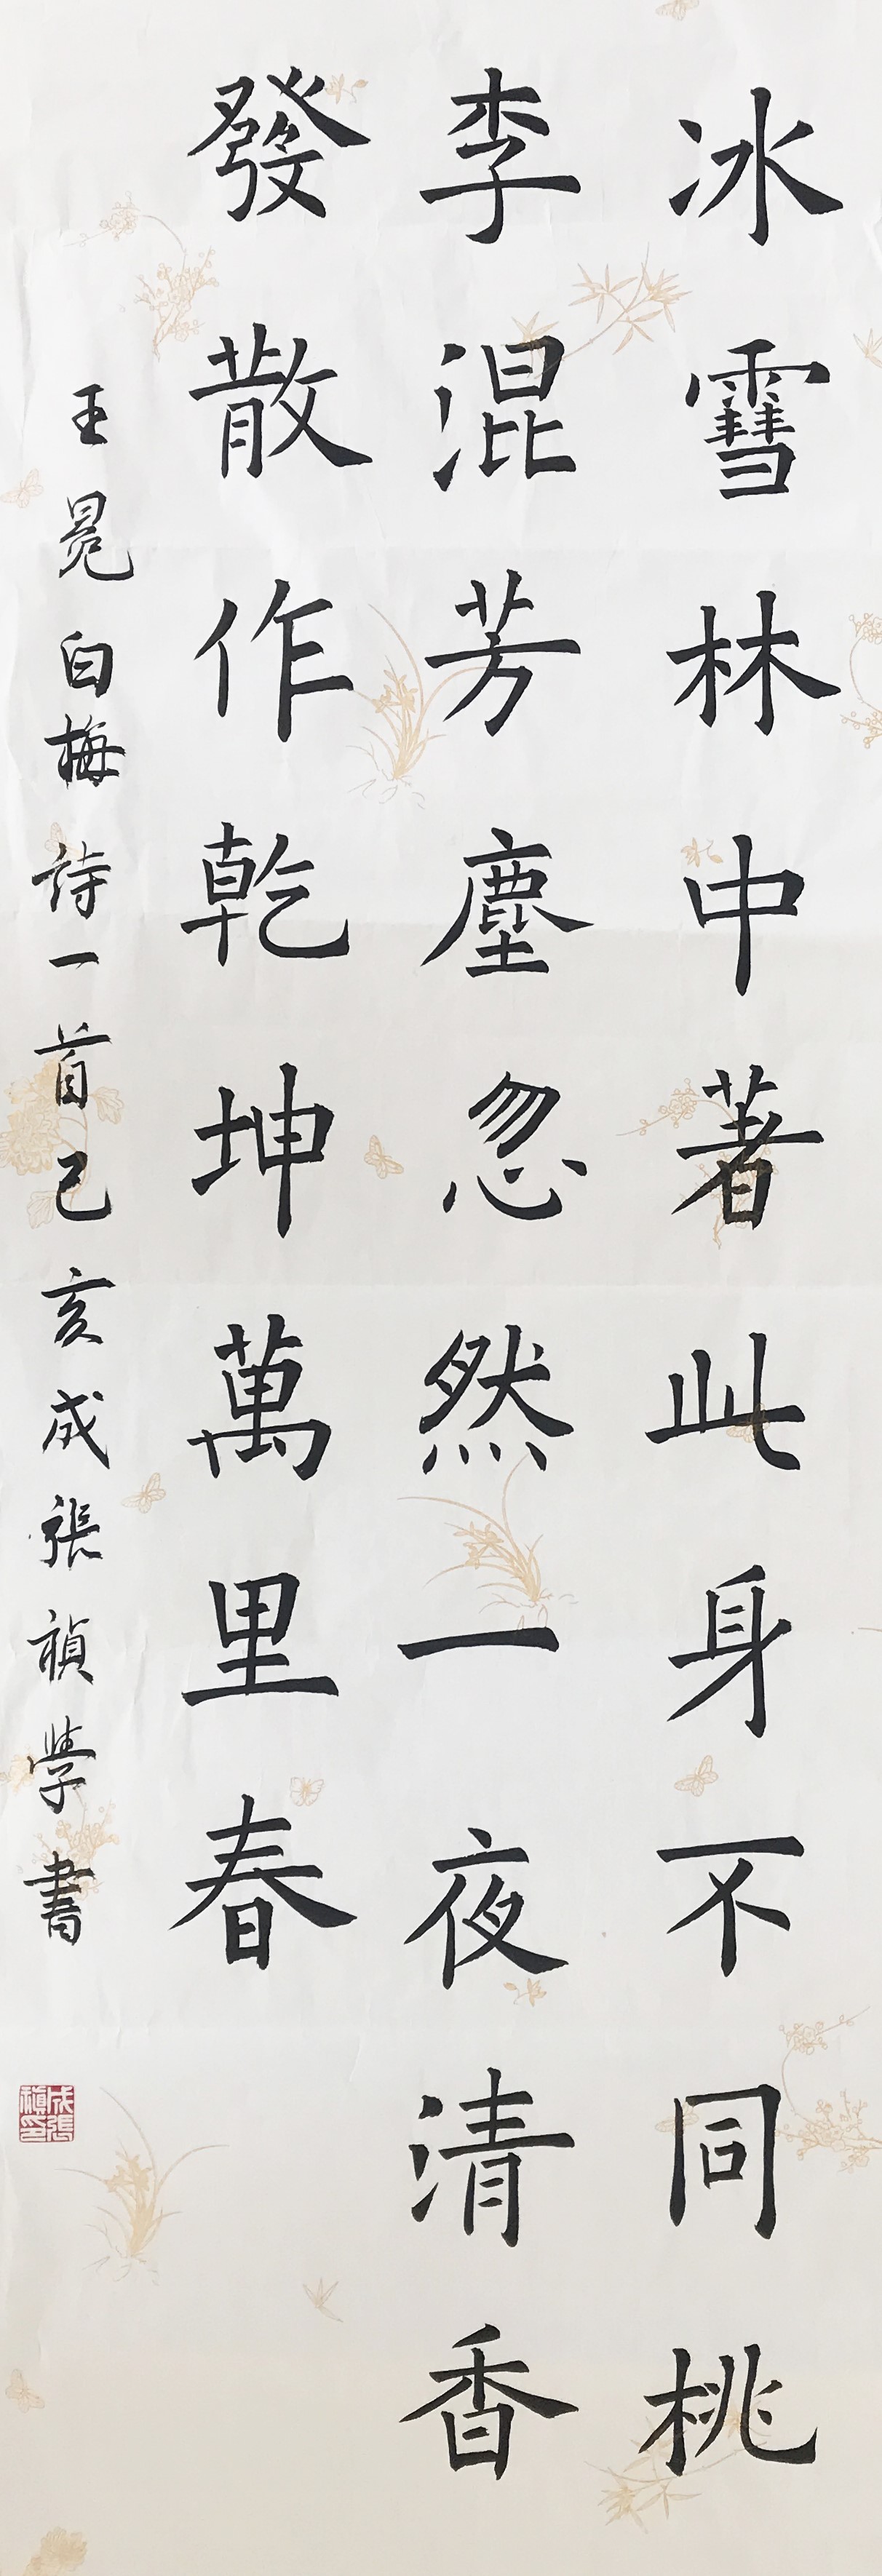 冰雪林中著此身不同桃
李混芳塵忽然一夜清香
發散作乾坤萬里春
王冕白梅詩一首己亥成張禎學書
成張禎印